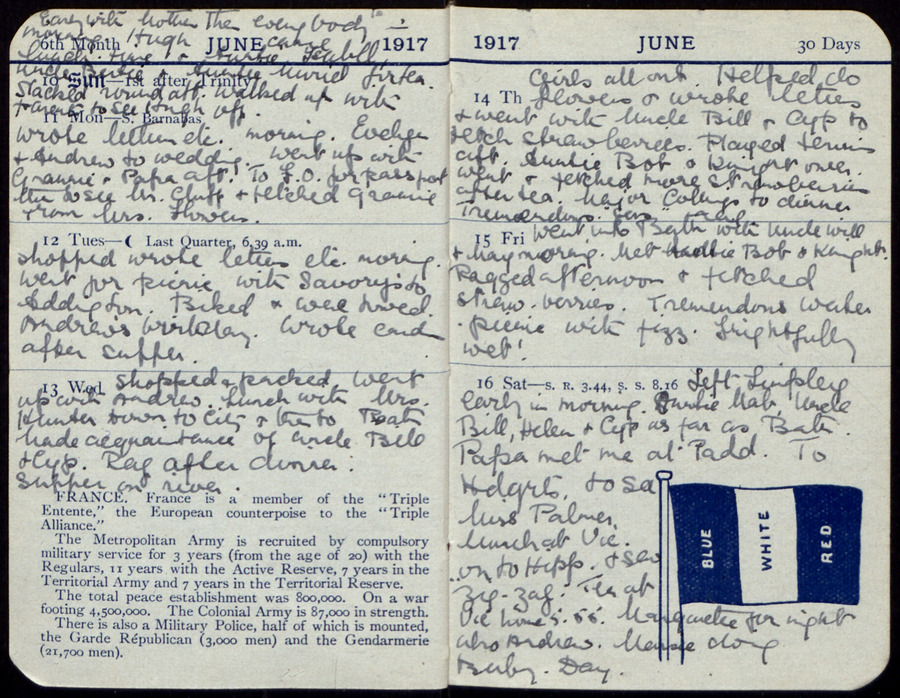 Early with Mother. Then everybody
morning. Hugh came
6th Month JUNE 1917
lunch time & Auntie
Uncle Bertie & Auntie Muriel for tea.
10 Sun—1st after Trinity
Slacked round aft. Walked up with
parents to see Hugh off.
11 Mon—S. Barnabas
wrote letters etc. morning. Evelyn
& Andrew to wedding. Went up with
Grannie & Papa aft. To F.O. for passport
then to see Mr. & fetched Grannie
from Mrs. Flowers.
12 Tues—☾ Last Quarter, 6.39 a.m.
shopped wrote letters etc. morning.
Went for picnic with Savory's to
Addington. Biked & were towed.
Andrews birthday. Wrote card
after supper.
13 Wed shopped & packed. Went
up with Andrew. Lunch with Mrs.
Hunter down to City & then to Bath
Made acquaintance of Uncle Bill
& Cyp. Rag after dinner.
Supper on river.
FRANCE. France is a member of the "Triple
Entente," the European counterpoise to the "Triple
Alliance."
The Metropolitan Army is recruited by compulsory
military service for 3 years (from the age of 20) with the
Regulars, 11 years with the Active Reserve, 7 years in the
Territorial Army and 7 years in the Territorial Reserve.
The total peace establishment was 800,000. On a war
footing 4,500,000. The Colonial Army is 87,000 in strength.
There is also a Military Police, half of which is mounted,
the Garde Républican (3,000 men) and the Gendarmerie
(21,700 men).
1917 JUNE 30 Days
Girls all out. Helped do
14 Th flowers & wrote letters
& went with Uncle Bill & Cyp to
fetch strawberries. Played tennis
aft. Auntie Bob & Knight over.
Went & fetched more strawberries
after tea. Major Collings to dinner
Tremendous
15 Fri Went into Bath with Uncle Will
& May morning. Met Auntie Bob & Knight.
Ragged afternoon & fetched
straw-berries. Tremendous water
picnic with fizz. Frightfully
wet!
16 Sat—S. R. 3.44, S. S. 8.16 Left Limpley
early in morning. Auntie Mab, Uncle
Bill, Helen & Cyp as far as Bath.
Papa met me at Padd. To
Hdqrts, to see
Miss Palmer.
Lunch at Vic.
on to Hipp. & saw
Zig-zag. Tea at
Vic home 5.55. Marguerite for night
also Andrew. Mause doing
Baby. Day.
BLUE
WHITE
RED